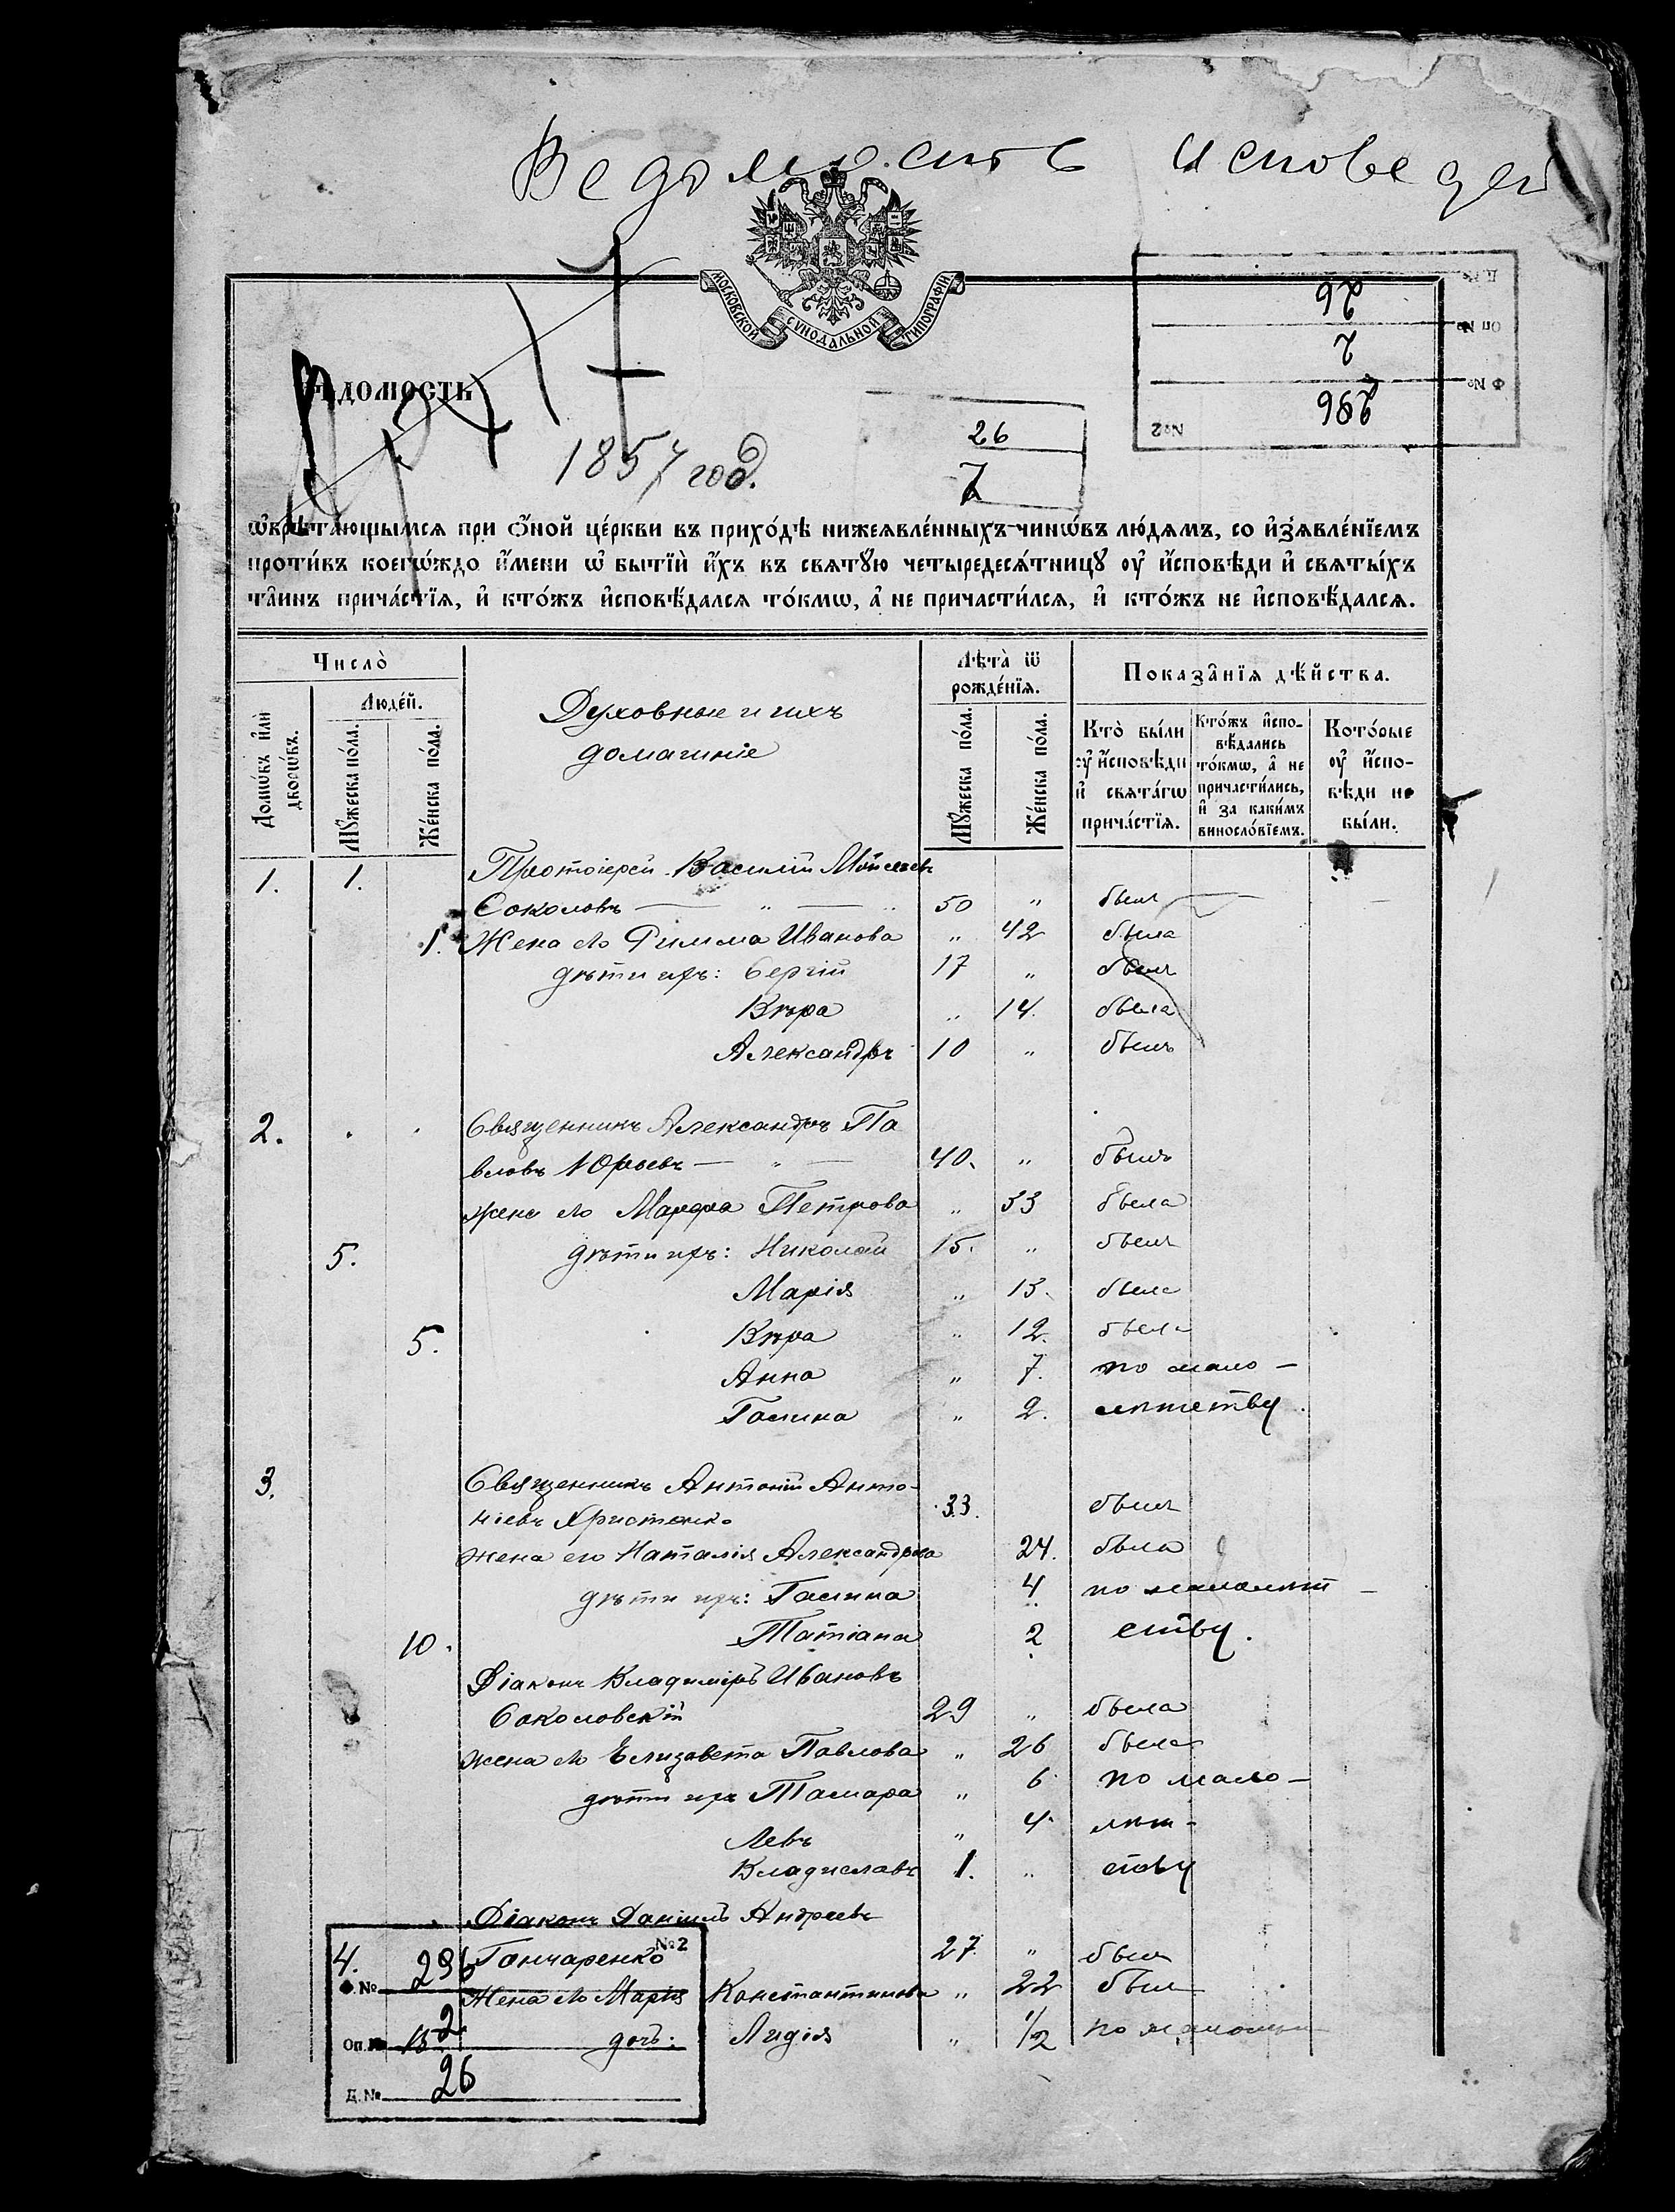 Ведомость исповедей
МОСКОВСКОЙ СѴНОДАЛЬНОЙ ТИПОГРАФІИ.
Д. №
26
Оп №
2
Ф №
296
№2
ВѢДОМОСТЬ
1857 год.
26
2
ѡ҆брѣта́ющымсѧ при ѻ҆́ной це́ркви въ прихо́дѣ нижеꙗвле́нныхъ чинѡ́въ лю́дѧмъ, со и҆з̾ѧвле́нїемъ
проти́въ коегѡ́ждо и҆́мени ѡ҆ бытїѝ и҆́хъ въ свѧтꙋ́ю четыредесѧ́тницꙋ ᲂу҆ и҆́сповѣди и҆ свѧты́хъ
та̑инъ прича́стїѧ, и҆ кто́жъ и҆сповѣ́дался то́кмѡ, а҆ не причасти́лся, и҆ кто́жъ не и҆сповѣ́дался.
Число̀
Домѡ́въ и҆лѝ дворѡ́въ.
Люде́й.
Мꙋ́жеска по́ла.
Же́нска по́ла.
Духовные и ихъ
домашніе
Лѣта̀ ѿ рожде́нїѧ.
Мꙋ́жеска по́ла.
Же́нска по́ла.
Показа̑нїѧ дѣ́йства.
Кто̀ бы́ли ᲂу҆ и҆́сповѣди и҆ свѧта́гѡ прича́стїѧ.
Кто́жъ и҆сповѣ́дались то́кмѡ, а҆ не причасти́лись, и҆ за каки́мъ виносло́вїемъ.
Кото́рые ᲂу҆ и҆́сповѣди не бы́ли.
1. 1. Протоіерей Василій Мойсеевъ
Соколовъ — „ — „ 50 „ былъ
1. Жена его Римма Иванова „ 42 была
дѣти ихъ: Сергій 17 „ былъ
Вѣра „ 14. была
Александръ 10 „ былъ
2. Священникъ Александръ Па
вловъ Юрьевъ — „ — 40. „ былъ
жена его Марфа Петрова „ 33 была
5. дѣти ихъ: Николай 15. „ былъ
Марія „ 13. была
5. Вѣра „ 12. была
Анна „ 7. по мало-
Галина „ 2. лѣтству.
3. Священникъ Антоній Анто-
ніевъ Христенко 33. былъ
жена его Наталія Александрова 24. была
дѣти ихъ: Галина 4 по малолѣт-
10. Татіана 2 ству.
Діаконъ Владиміръ Ивановъ
Соколовскій 29 „ была
жена его Елизавета Павлова „ 26 была
дѣти ихъ Тамара „ 6 по мало-
Левъ „ 4. лѣт-
Владиславъ 1. „ ству
Діаконъ Даніилъ Андреевъ
4. Гончаренко 27. „ былъ
Жена его Марія Константинова „ 22 был
15 дочь: Лидія „ 1/2 по малолѣт
№2
Ф. № 296
Оп. № 2
Д. № 26